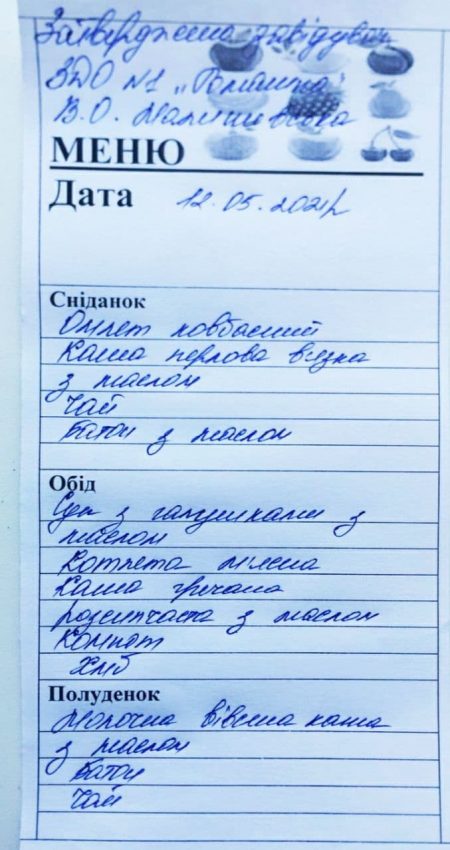 Затверджена завідувач
ЗДО №1 „Ромашка"
В.О.
МЕНЮ
Дата 12.05.2021р
Сніданок
Омлет ковбасний
Каша перлова в'язка
з маслом
Чай
Батон з маслом
Обід
Суп з галушками з
маслом
Котлета м'ясна
Каша гречана
розсипчаста з маслом
Компот
Хліб
Полуденок
Молочна вівсяна каша
з маслом
Батон
Чай